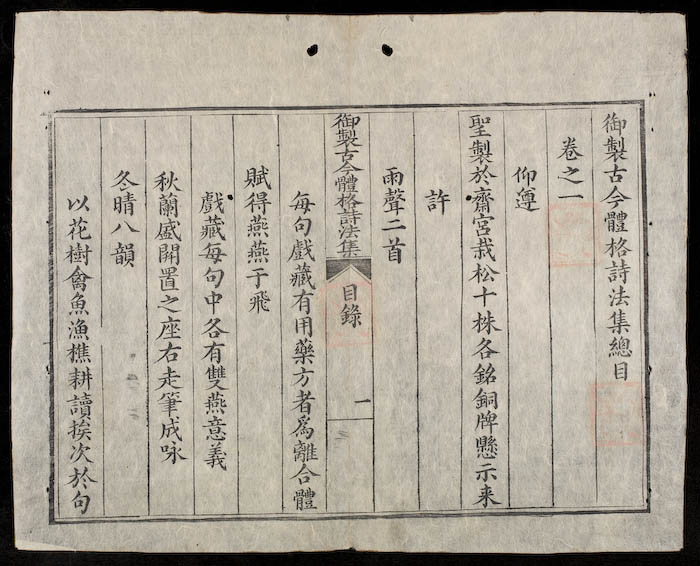 御製古今體格詩法集總目
卷之一
仰遵
聖製於齋宮栽松十株各銘銅牌懸示来
許
雨聲二首
御製古今體格詩法集
目錄
一
每句戲藏有用藥方者爲離合體
賦得燕燕于飛
戲藏每句中各有雙燕意義
秋蘭盛開置之座右走筆成咏
冬晴八韻
以花樹禽魚漁樵耕讀挨次於句